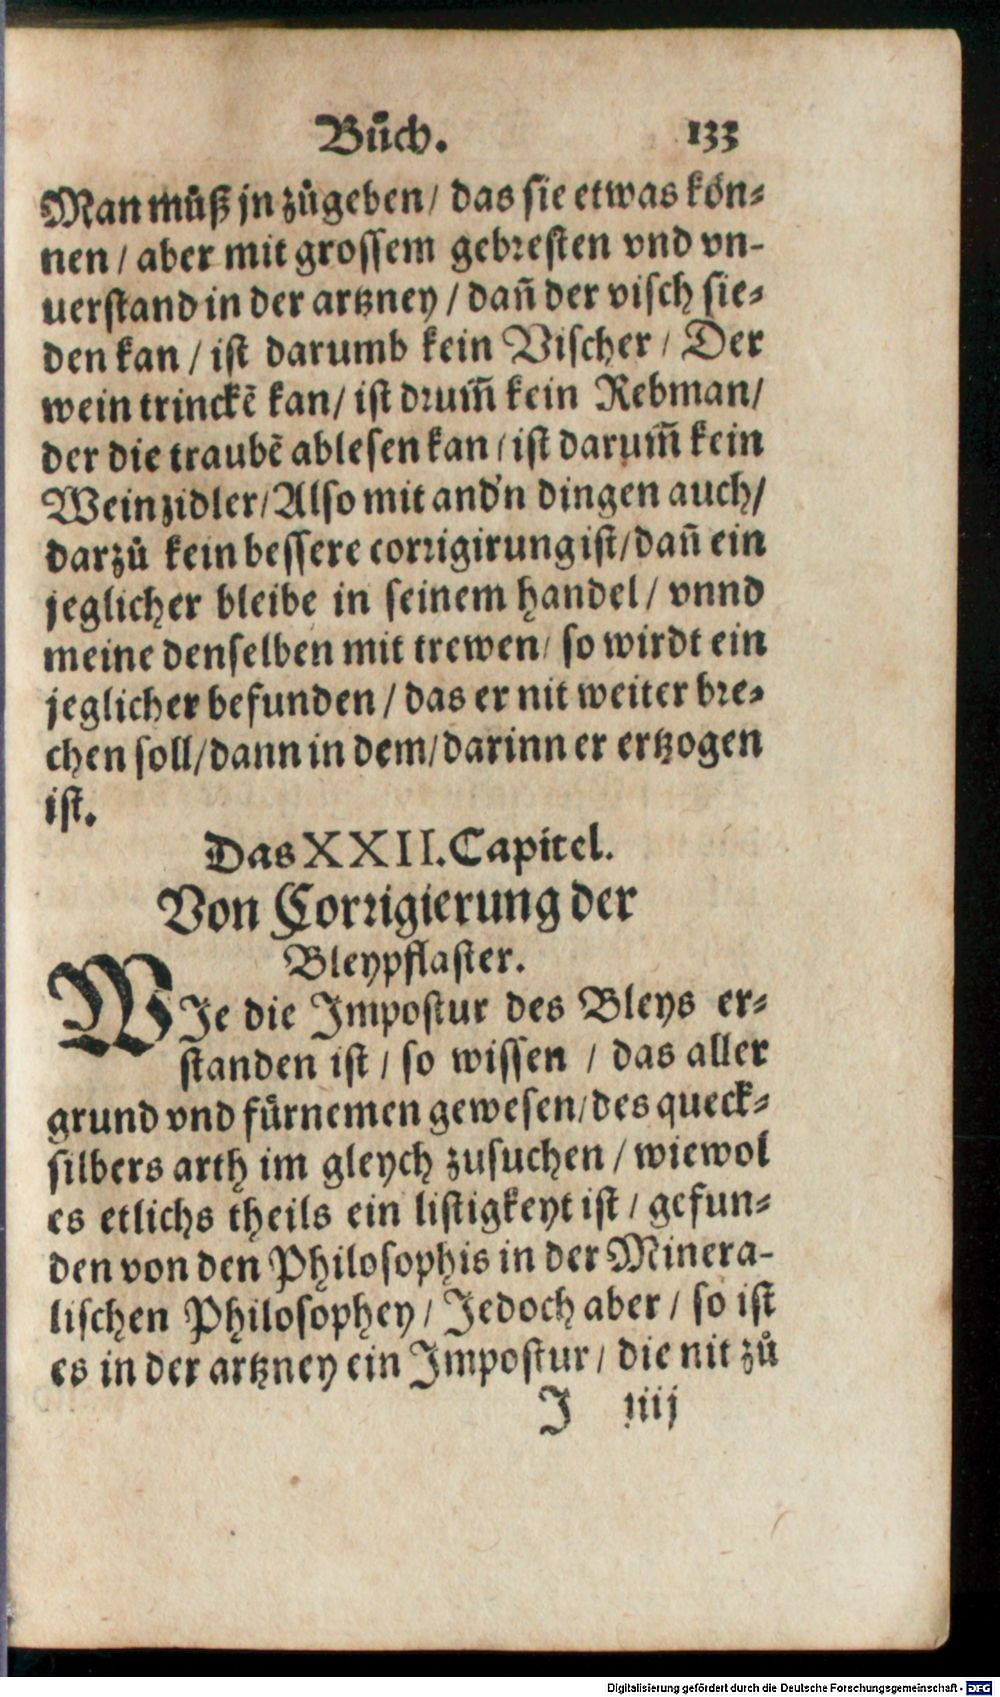 Bůch. 133
Man můß jn zůgeben / das sie etwas kön-
nen / aber mit grossem gebresten vnd vn-
uerstand in der artzney / dañ der visch sie-
den kan / ist darumb kein Vischer / Der
wein trinckē kan / ist drum̃ kein Rebman /
der die traubē ablesen kan / ist darum̃ kein
Weinzidler / Also mit and'n dingen auch /
darzů kein bessere corrigirung ist / dañ ein
jeglicher bleibe in seinem handel / vnnd
meine denselben mit trewen / so wirdt ein
jeglicher befunden / das er nit weiter bre-
chen soll / dann in dem / darinn er ertzogen
ist.
Das XXII. Capitel.
Von Corrigierung der
Bleypflaster.
WJe die Jmpostur des Bleys er-
standen ist / so wissen / das aller
grund vnd fürnemen gewesen / des queck-
silbers arth im gleych zusuchen / wiewol
es etlichs theils ein listigkeyt ist / gefun-
den von den Philosophis in der Minera-
lischen Philosophey / Jedoch aber / so ist
es in der artzney ein Jmpostur / die nit zů
J iiij
Digitalisierung gefördert durch die Deutsche Forschungsgemeinschaft - DFG